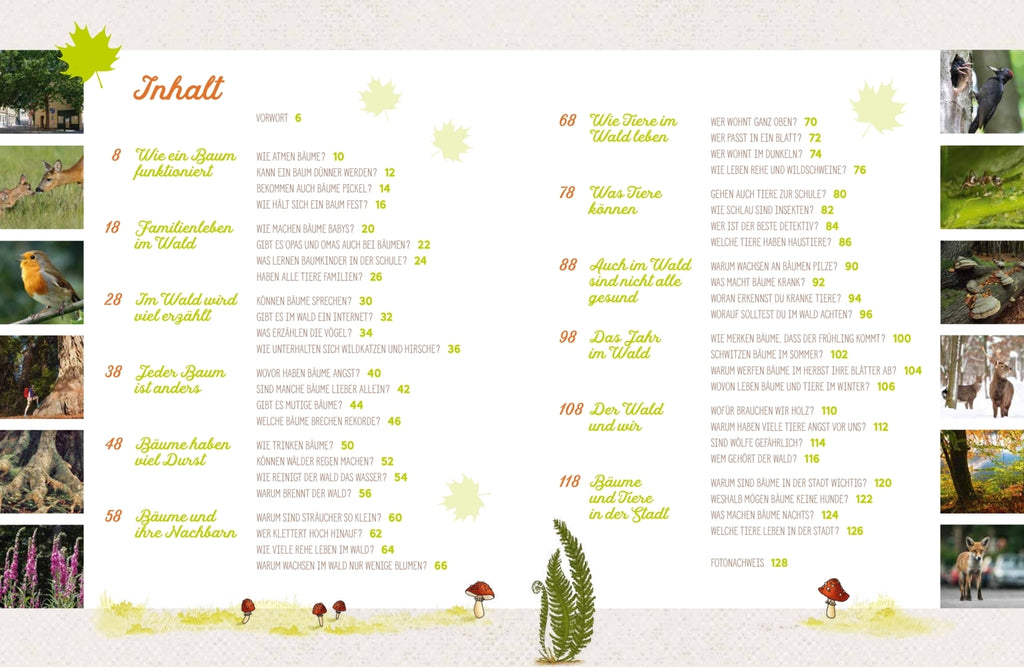 Inhalt
VORWORT 6
8 Wie ein Baum
funktioniert
WIE ATMEN BÄUME? 10
KANN EIN BAUM DÜNNER WERDEN? 12
BEKOMMEN AUCH BÄUME PICKEL? 14
WIE HÄLT SICH EIN BAUM FEST? 16
18 Familienleben
im Wald
WIE MACHEN BÄUME BABYS? 20
GIBT ES OPAS UND OMAS AUCH BEI BÄUMEN? 22
WAS LERNEN BAUMKINDER IN DER SCHULE? 24
HABEN ALLE TIERE FAMILIEN? 26
28 Im Wald wird
viel erzählt
KÖNNEN BÄUME SPRECHEN? 30
GIBT ES IM WALD EIN INTERNET? 32
WAS ERZÄHLEN DIE VÖGEL? 34
WIE UNTERHALTEN SICH WILDKATZEN UND HIRSCHE? 36
38 Jeder Baum
ist anders
WOVOR HABEN BÄUME ANGST? 40
SIND MANCHE BÄUME LIEBER ALLEIN? 42
GIBT ES MUTIGE BÄUME? 44
WELCHE BÄUME BRECHEN REKORDE? 46
48 Bäume haben
viel Durst
WIE TRINKEN BÄUME? 50
KÖNNEN WÄLDER REGEN MACHEN? 52
WIE REINIGT DER WALD DAS WASSER? 54
WARUM BRENNT DER WALD? 56
58 Bäume und
ihre Nachbarn
WARUM SIND STRÄUCHER SO KLEIN? 60
WER KLETTERT HOCH HINAUF? 62
WIE VIELE REHE LEBEN IM WALD? 64
WARUM WACHSEN IM WALD NUR WENIGE BLUMEN? 66
68 Wie Tiere im
Wald leben
WER WOHNT GANZ OBEN? 70
WER PASST IN EIN BLATT? 72
WER WOHNT IM DUNKELN? 74
WIE LEBEN REHE UND WILDSCHWEINE? 76
78 Was Tiere
können
GEHEN AUCH TIERE ZUR SCHULE? 80
WIE SCHLAU SIND INSEKTEN? 82
WER IST DER BESTE DETEKTIV? 84
WELCHE TIERE HABEN HAUSTIERE? 86
88 Auch im Wald
sind nicht alle
gesund
WARUM WACHSEN AN BÄUMEN PILZE? 90
WAS MACHT BÄUME KRANK? 92
WORAN ERKENNST DU KRANKE TIERE? 94
WORAUF SOLLTEST DU IM WALD ACHTEN? 96
98 Das Jahr
im Wald
WIE MERKEN BÄUME, DASS DER FRÜHLING KOMMT? 100
SCHWITZEN BÄUME IM SOMMER? 102
WARUM WERFEN BÄUME IM HERBST IHRE BLÄTTER AB? 104
WOVON LEBEN BÄUME UND TIERE IM WINTER? 106
108 Der Wald
und wir
WOFÜR BRAUCHEN WIR HOLZ? 110
WARUM HABEN VIELE TIERE ANGST VOR UNS? 112
SIND WÖLFE GEFÄHRLICH? 114
WEM GEHÖRT DER WALD? 116
118 Bäume
und Tiere
in der Stadt
WARUM SIND BÄUME IN DER STADT WICHTIG? 120
WESHALB MÖGEN BÄUME KEINE HUNDE? 122
WAS MACHEN BÄUME NACHTS? 124
WELCHE TIERE LEBEN IN DER STADT? 126
FOTONACHWEIS 128